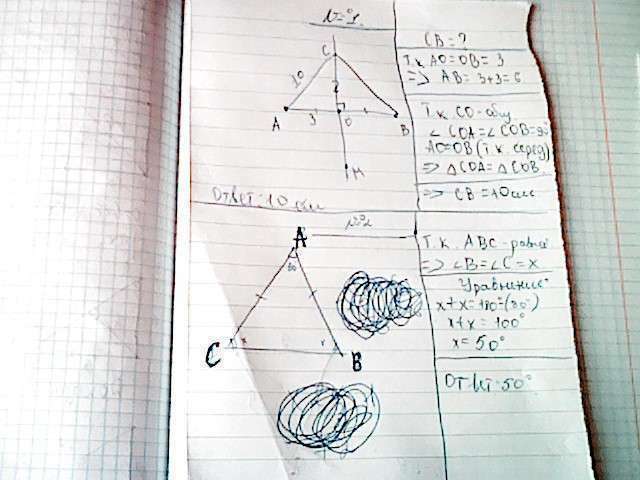 №1.
C
10
A
3
O
B
M
Ответ: 10 см
CB = ?
Т.к AO = OB = 3
=> AB = 3+3 = 6
Т.к. CO - общ
∠COA = ∠COB = 90°
AO = OB (т.к. серед)
=> △COA = △COB
=> CB = 10 см
№2
A
80
C
x
B
Т.к. ABC -
=> ∠B = ∠C = x
Уравнение:
x + x = 180° - (80°)
x + x = 100°
x = 50°
Ответ: 50°